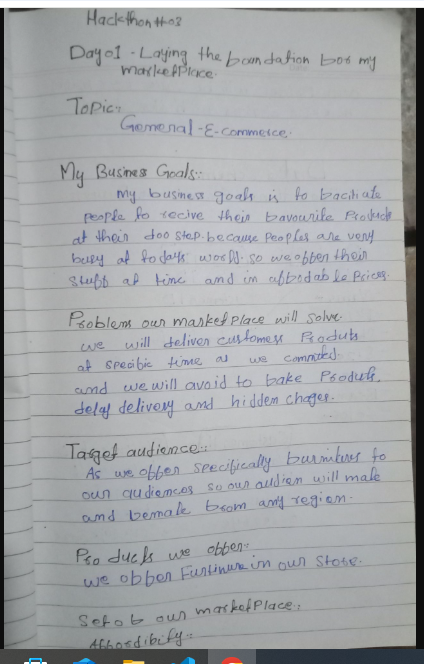 Hackthon#03
Day01 - Laying the foundation for my
marketPlace.
Topic:
General -E-commerce.
My Business Goals:
My business goals is to facitiate
people to recive their favourite Products
at their doo step. because peoples are very
busy at todays world. so we offen their
stuff at time and in affodable Prices.
Problems our marketPlace will solve.
we will deliver customers Products
at specific time as we commited.
and we will avoid to fake Products,
delay delivery and hidden chages.
Target audience:
As we offer specifically furnitures to
our audiences so our audien will male
and female from any region.
Products we offer:
we offer Furtinure in our store.
Set of our marketPlace:
Affordibity: